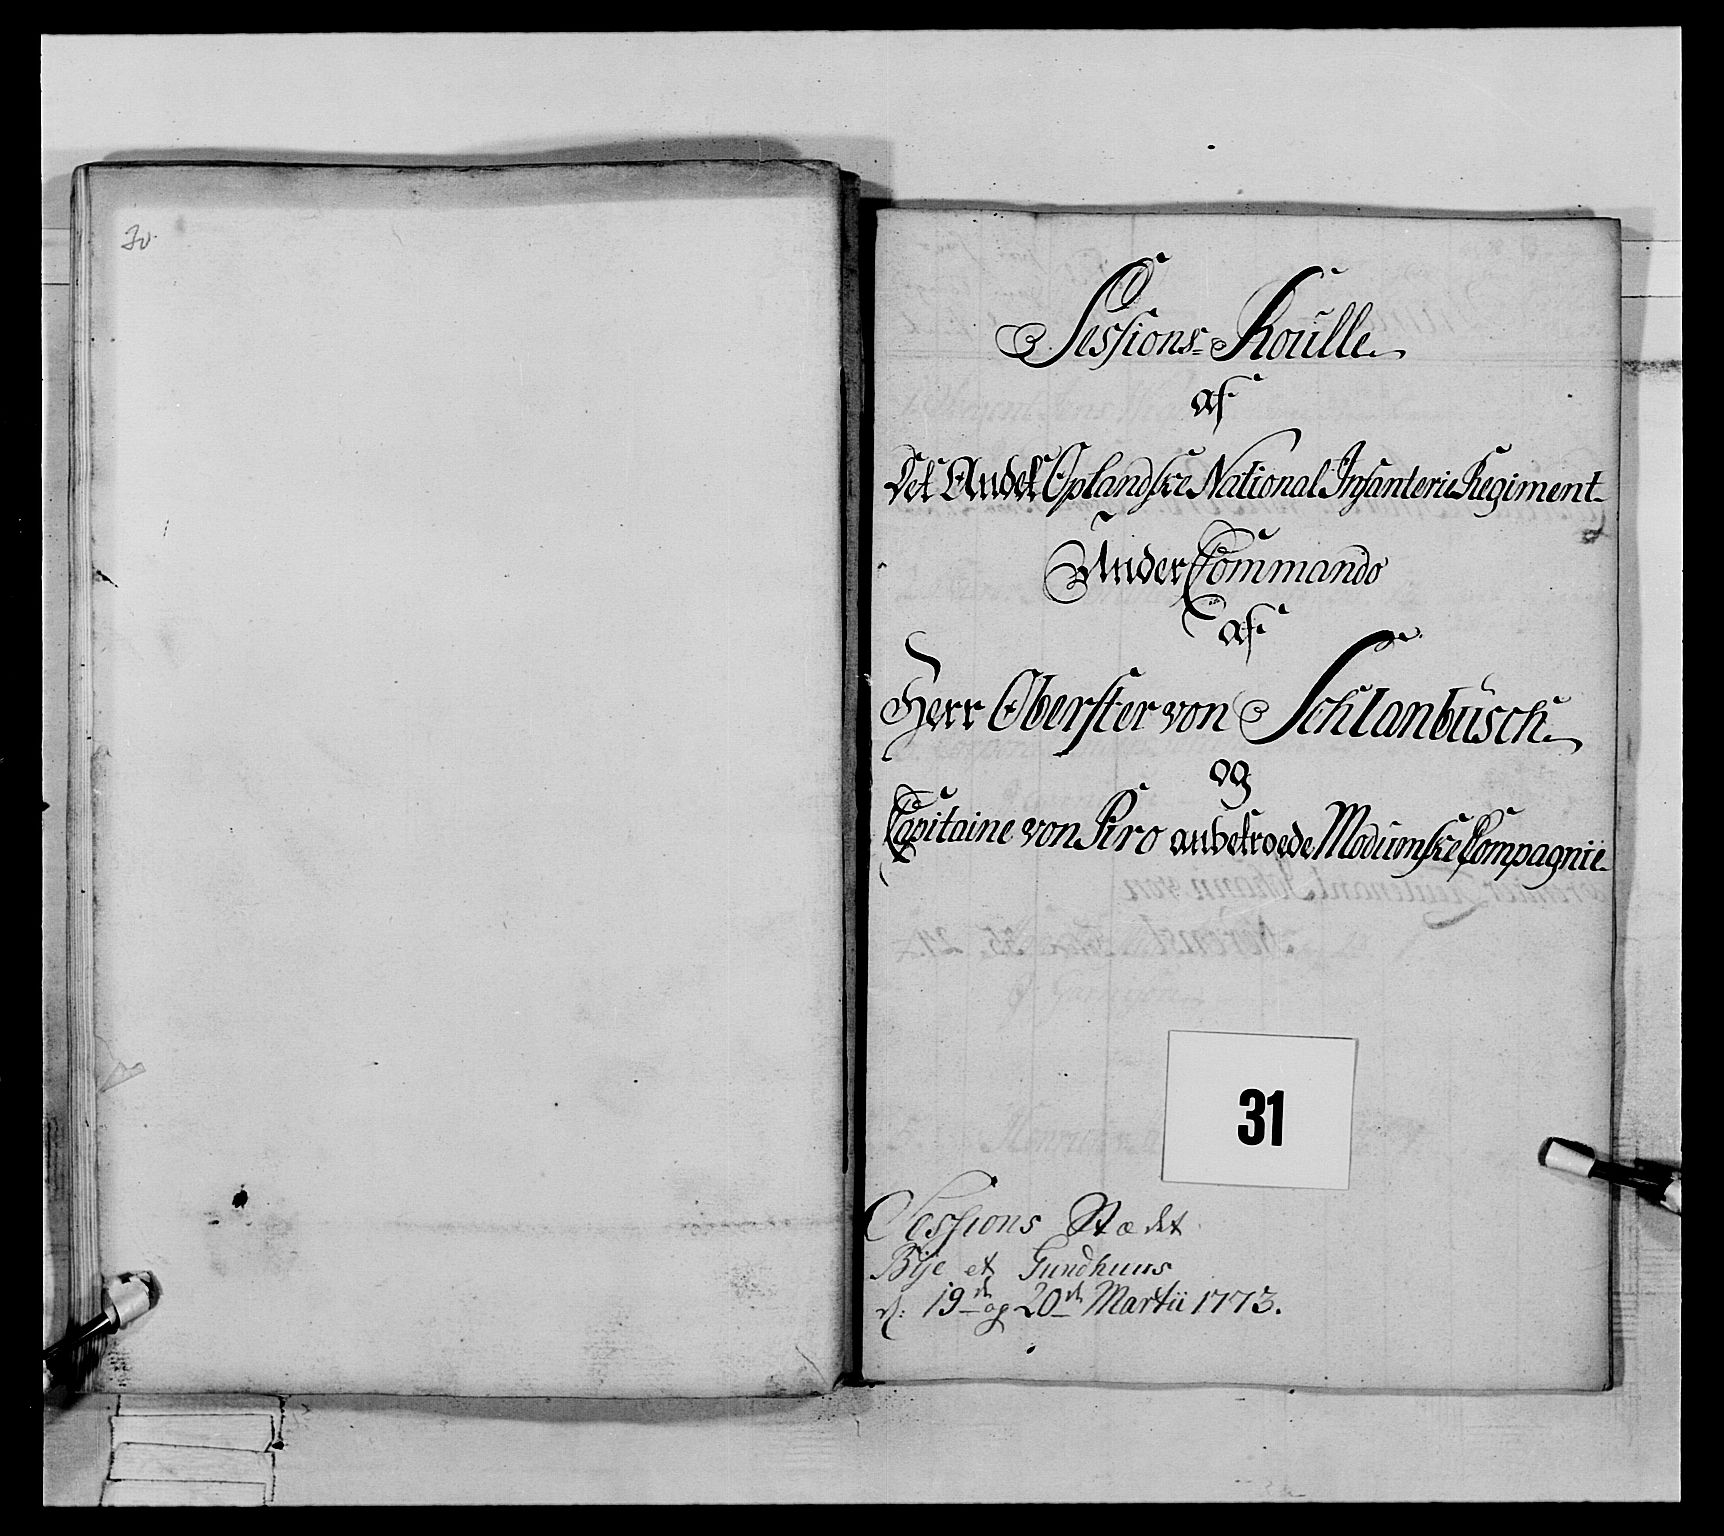 30.
Sessions= Roulle
af
Det Andet Oplandske National Infanterie Regiment
Under Commando
af
Herr Oberster von Schlanbüsch
og
Capitaine von Kro anbetroede Modumske Compagnie
31
Sessions Stædet
Bije et Gundhuus
d: 19de og 20de Martii 1773.